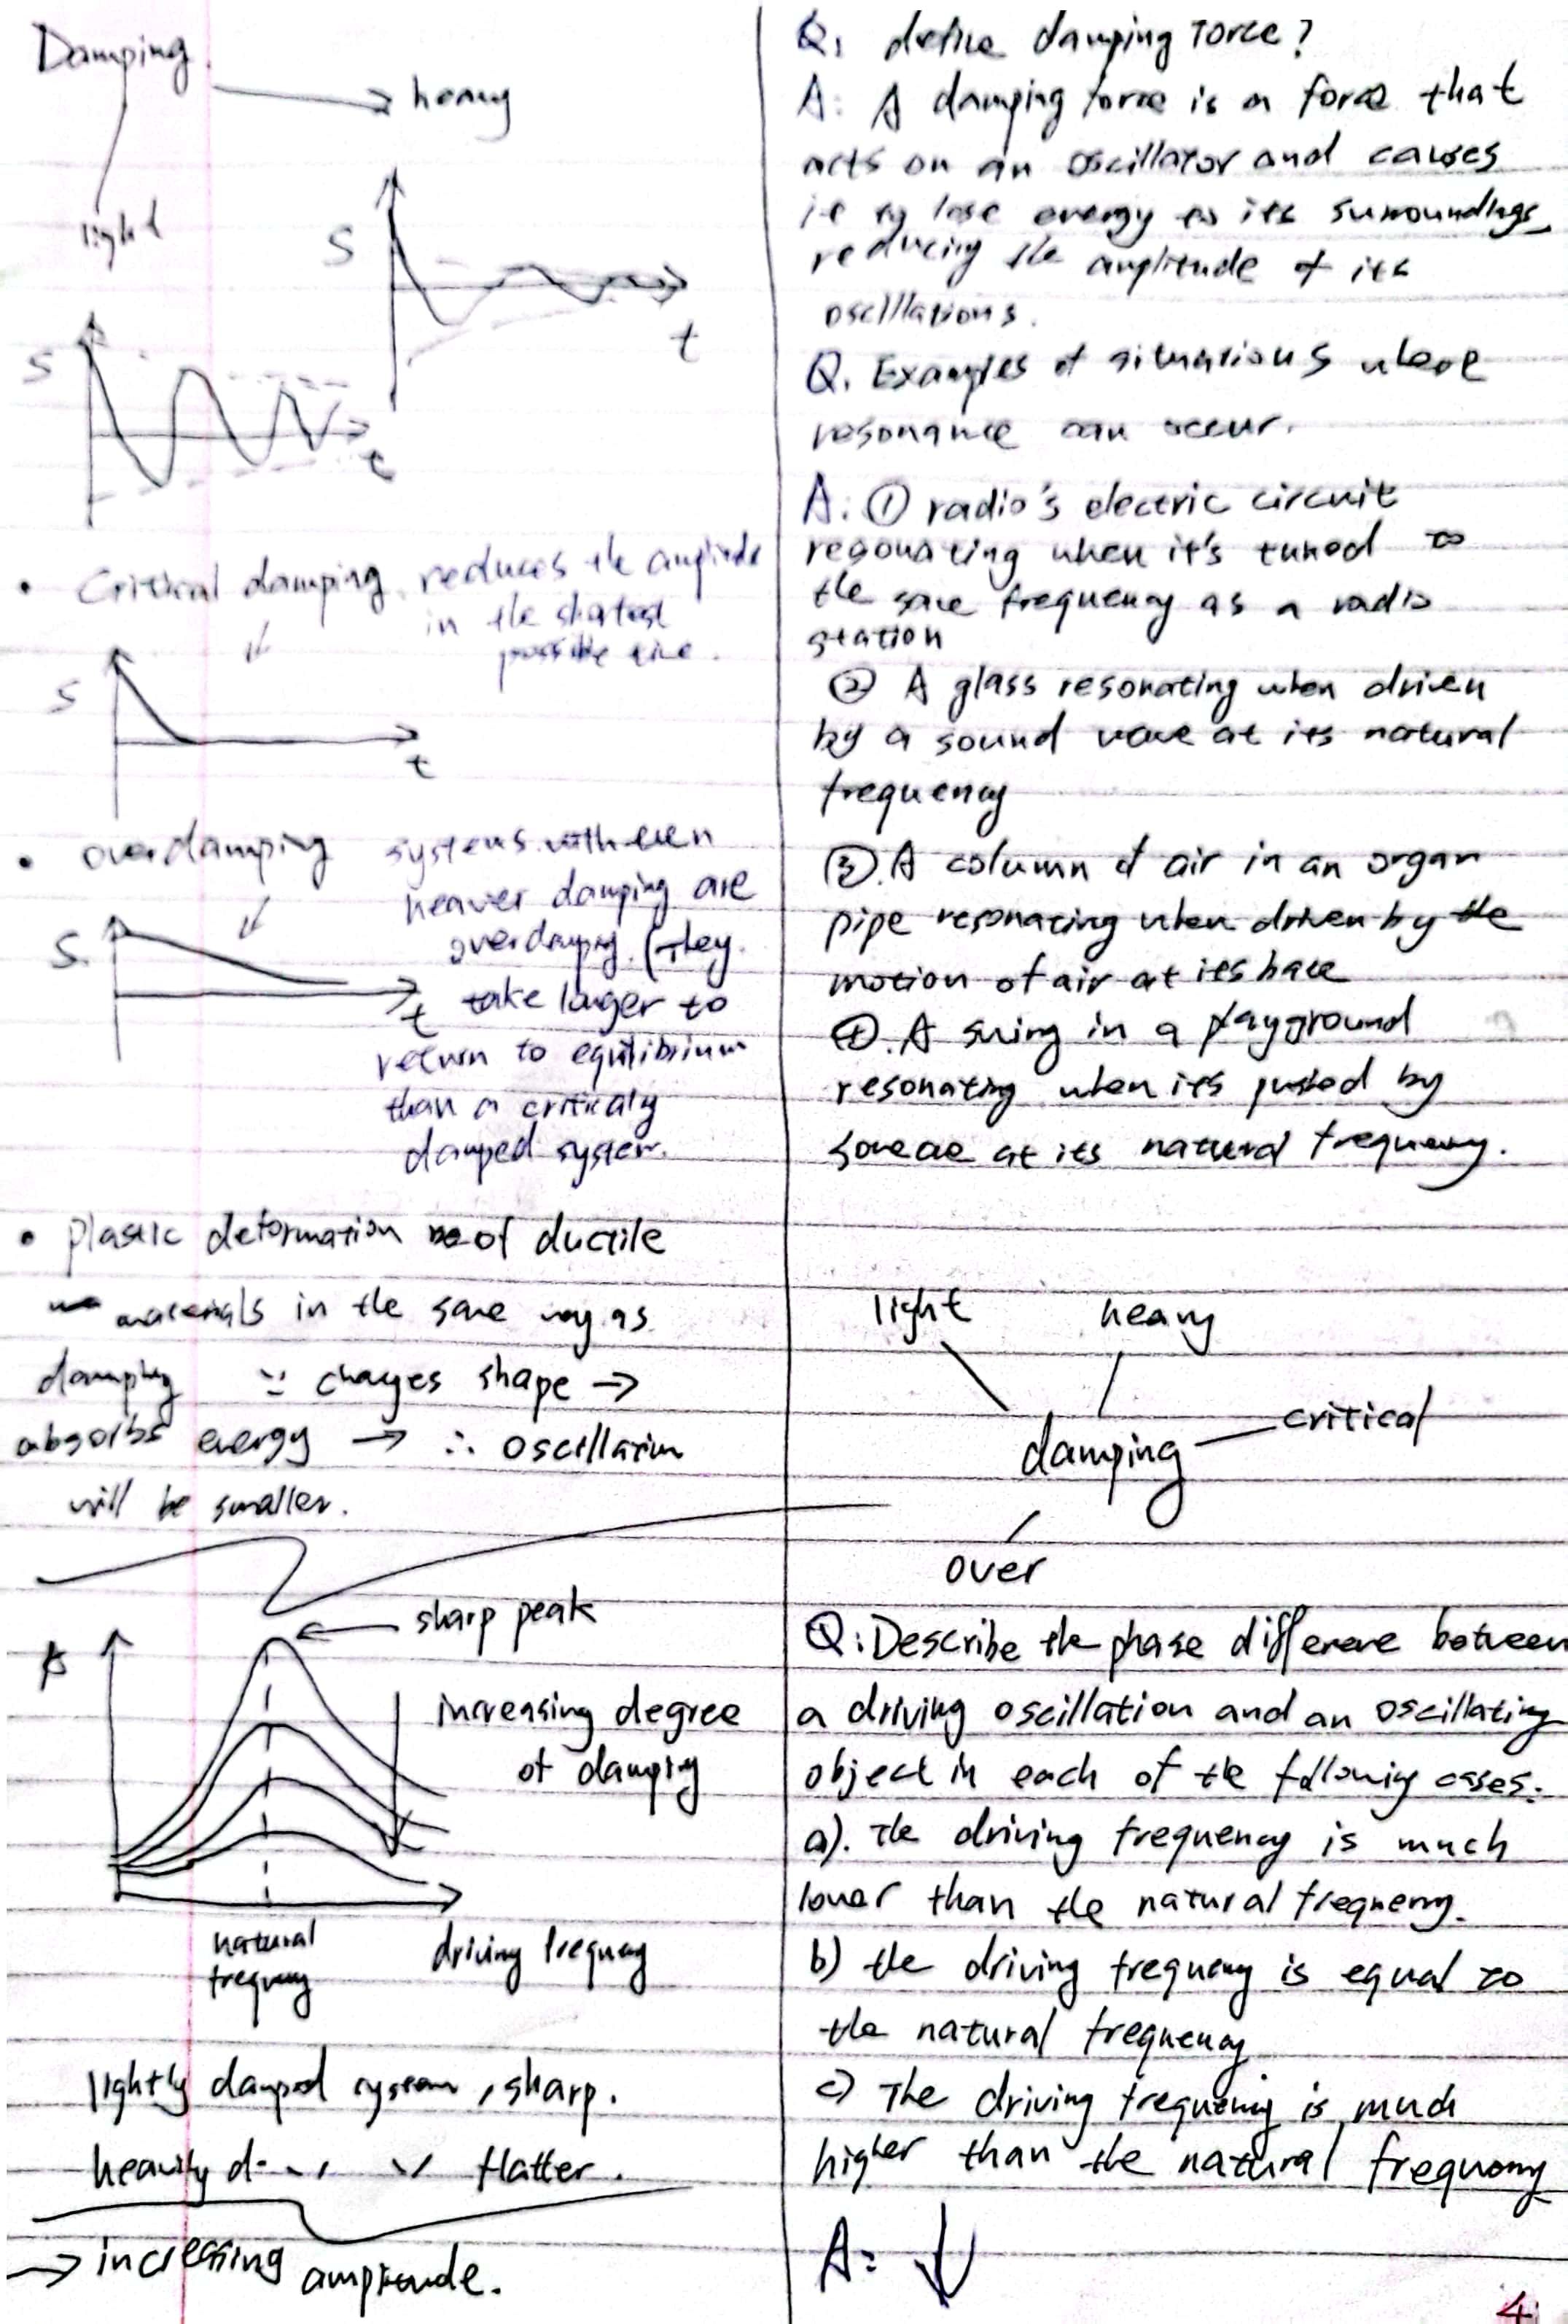 Damping
heavy
light
S
t
S
t
• Critical damping reduces the amplitude
in the shortest
possible time.
S
t
• overdamping systems with even
heavier damping are
overdamping. (They
take longer to
return to equilibrium
than a criticaly
damped system.
S
t
• plastic deformation of ductile
materials in the same way as
damping ∵ changes shape →
absorbs energy → ∴ oscillation
will be smaller.
sharp peak
increasing degree
of damping
natural
frequency
driving frequency
lightly damped system, sharp.
heavily d- flatter.
→ increasing amplitude.
Q: define damping force?
A: A damping force is a force that
acts on an oscillator and causes
it to lose energy to its surroundings,
reducing the amplitude of its
oscillations.
Q. Examples of situations where
resonance can occur.
A: ① radio's electric circuit
resonating when it's tuned to
the same frequency as a radio
station
② A glass resonating when driven
by a sound wave at its natural
frequency
③. A column of air in an organ
pipe resonating when driven by the
motion of air at its base
④. A swing in a playground
resonating when its pushed by
someone at its natural frequency.
light
heavy
critical
damping
over
Q: Describe the phase difference between
a driving oscillation and an oscillating
object in each of the following cases:
a). The driving frequency is much
lower than the natural frequency.
b) the driving frequency is equal to
the natural frequency
c) The driving frequency is much
higher than the natural frequency
A: ↓
4